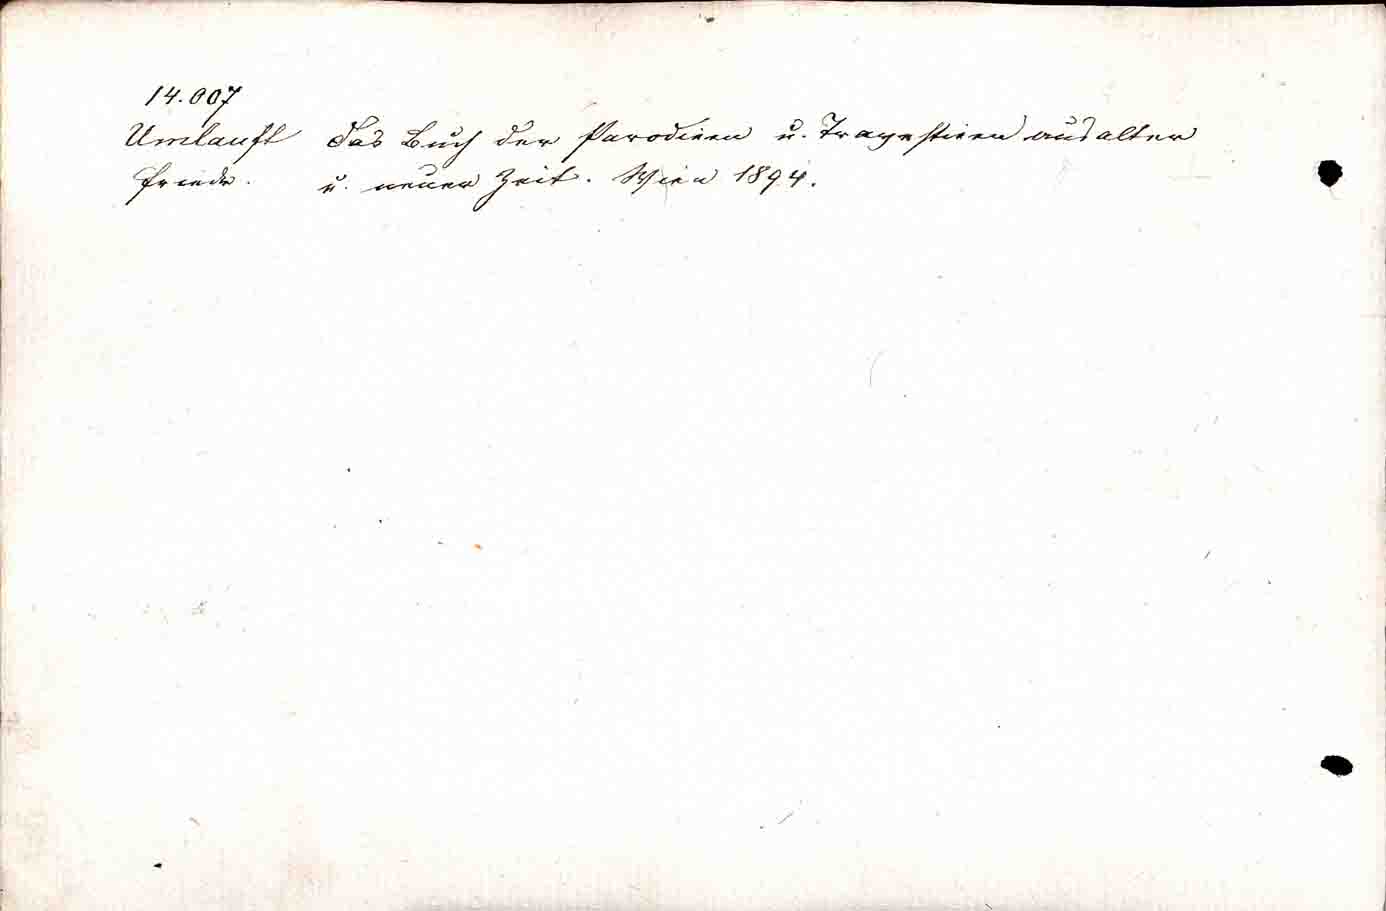 14.007
Umlauft Das Buch der Parodieen u. Travestieen aus alter
Friedr. u. neuer Zeit. Wien 1894.